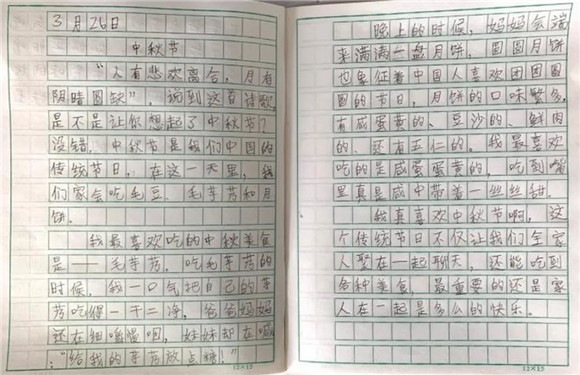 3月26日
中秋节
“人有悲欢离合，月有
阴晴圆缺”，说到这首诗歌，
是不是让你想起了中秋节？
没错，中秋节是我们中国的
传统节日。在这一天里，我
们家会吃毛豆、毛芋艿和月
饼。
我最喜欢吃的中秋美食
是——毛芋艿，吃毛芋艿的
时候，我一口气把自己的芋
艿吃得一干二净，爸爸妈妈
还在细嚼慢咽，妹妹却在喊
：“给我的芋艿放点糖！”
12×15
晚上的时候，妈妈会端
来满满一盘月饼，圆圆月饼
也象征着中国人喜欢团团圆
圆的节日，月饼的口味繁多，
有咸蛋黄的、豆沙的、鲜肉
的、还有五仁的。我最喜欢
吃的是咸蛋蛋黄的，吃到嘴
里真是咸中带着一丝丝甜。
我真喜欢中秋节啊，这
个传统节日不仅让我们全家
人聚在一起聊天，还能吃到
各种美食，最重要的还是家
人在一起是多么的快乐。
12×15